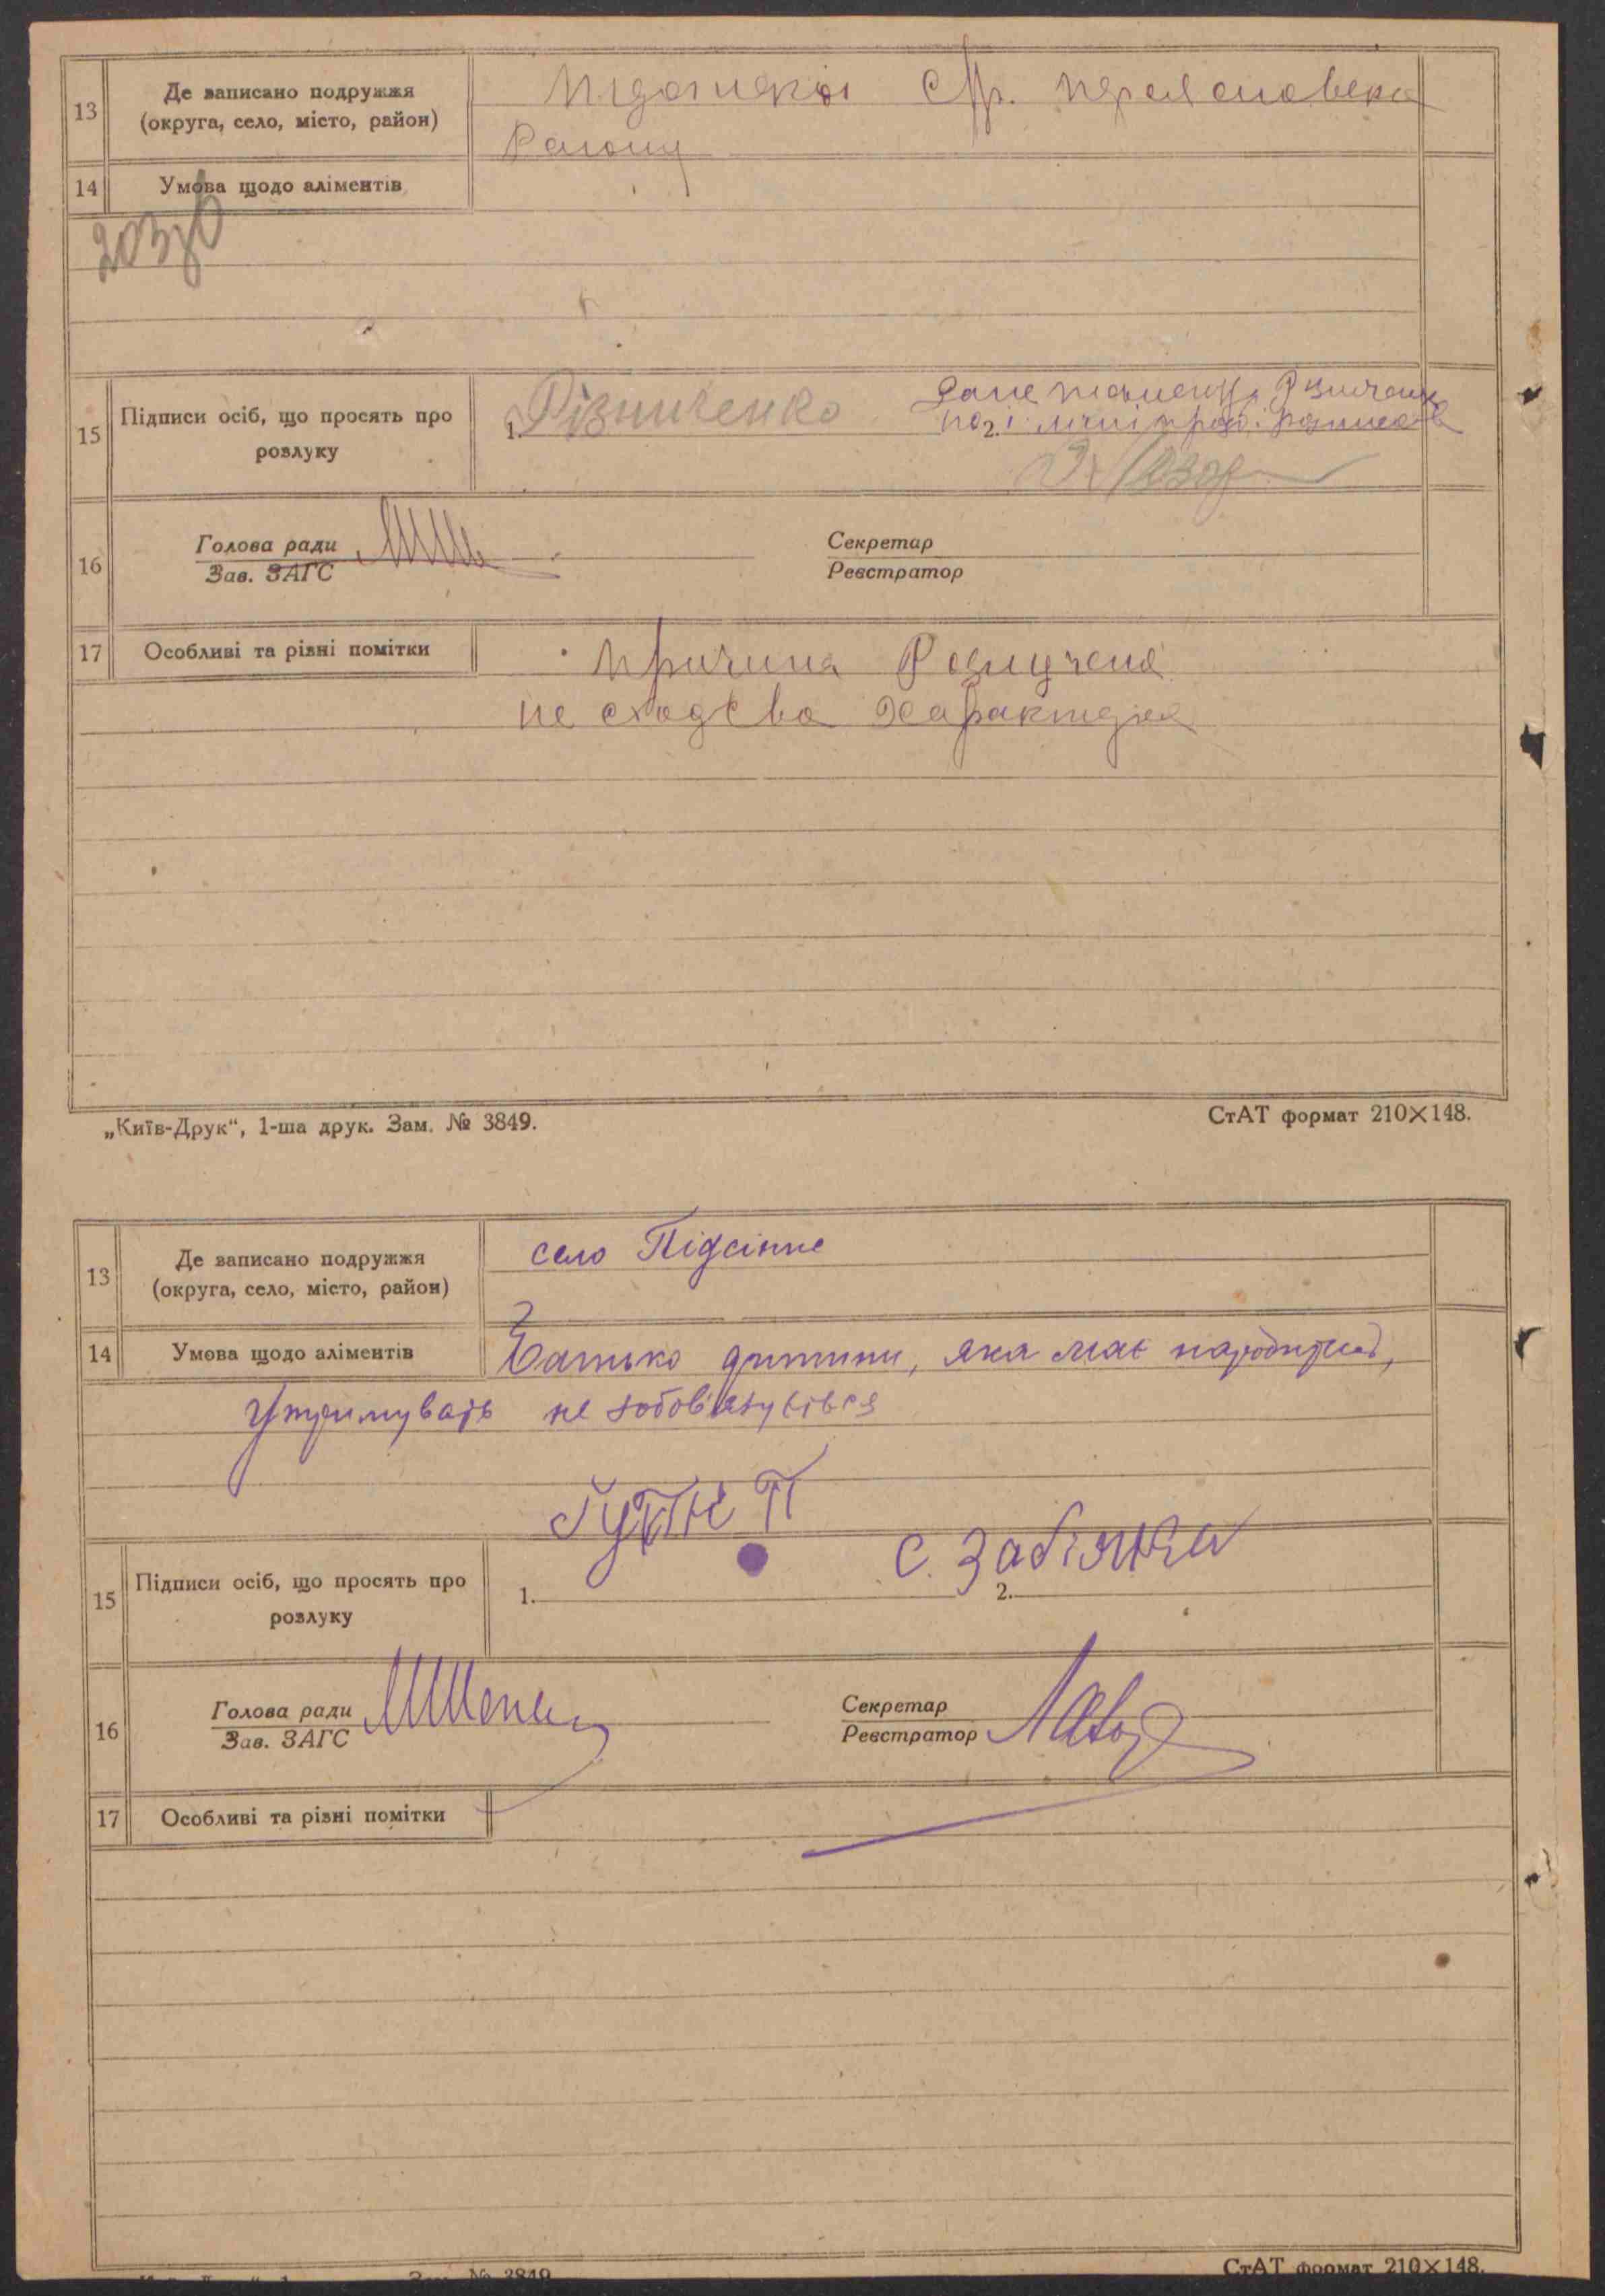 13
Де записано подружжя
(округа, село, місто, район)
С/р.
Району
14
Умова щодо аліментів
15
Підписи осіб, що просять про
розлуку
1.
Різниченко
2.
16
Голова ради
Зав. ЗАГС
Секретар
Реєстратор
17
Особливі та різні помітки
причина Розлучена
не сходства Характера
„Київ-Друк“, 1-ша друк. Зам. № 3849.
СтАТ формат 210×148.
13
Де записано подружжя
(округа, село, місто, район)
село Підсінне
14
Умова щодо аліментів
Батько дитини, яка має народитись,
утримувать не зобов'язується
15
Підписи осіб, що просять про
розлуку
1.
С. Забіяка
2.
16
Голова ради
Зав. ЗАГС
Секретар
Реєстратор
17
Особливі та різні помітки
№ 3849
СтАТ формат 210×148.